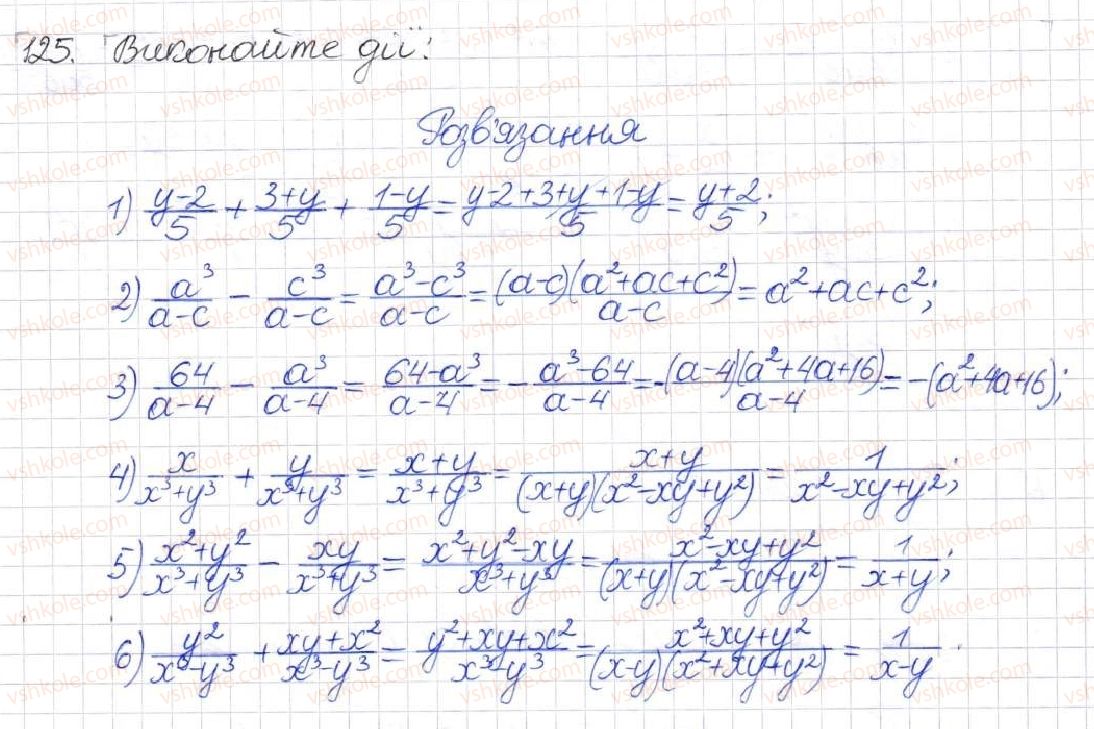 125. Виконайте дії:
Розв'язання
1) (y-2)/5 + (3+y)/5 + (1-y)/5 = (y-2+3+y+1-y)/5 = (y+2)/5;
2) a³/(a-c) - c³/(a-c) = (a³-c³)/(a-c) = (a-c)(a²+ac+c²)/(a-c) = a²+ac+c²;
3) 64/(a-4) - a³/(a-4) = (64-a³)/(a-4) = -(a³-64)/(a-4) = -(a-4)(a²+4a+16)/(a-4) = -(a²+4a+16);
4) x/(x³+y³) + y/(x³+y³) = (x+y)/(x³+y³) = (x+y)/((x+y)(x²-xy+y²)) = 1/(x²-xy+y²);
5) (x²+y²)/(x³+y³) - xy/(x³+y³) = (x²+y²-xy)/(x³+y³) = (x²-xy+y²)/((x+y)(x²-xy+y²)) = 1/(x+y);
6) y²/(x³-y³) + (xy+x²)/(x³-y³) = (y²+xy+x²)/(x³-y³) = (x²+xy+y²)/((x-y)(x²+xy+y²)) = 1/(x-y).
vshkole.com